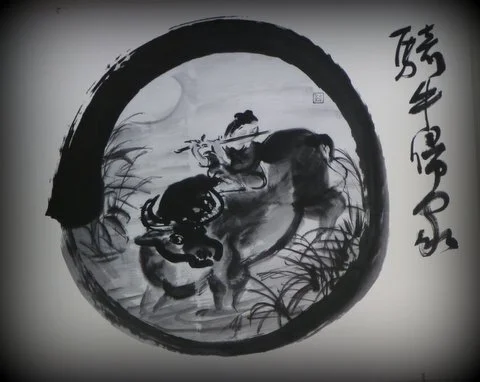 騎牛歸家